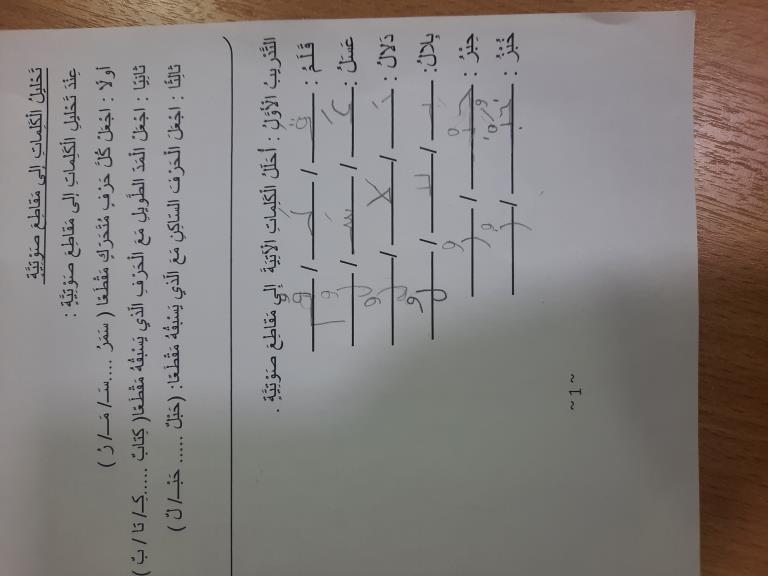 تَحْلِيلُ الْكَلِمَاتِ إِلَى مَقَاطِعَ صَوْتِيَّةٍ
عِنْدَ تَحْلِيلِ الْكَلِمَاتِ إِلَى مَقَاطِعَ صَوْتِيَّةٍ :
أولًا : اجْعَلْ كُلَّ حَرْفٍ مُتَحَرِّكٍ مَقْطَعًا ( سَمَرُ .... سَـ / مَـ / رُ )
ثَانِيًا : اجْعَلْ الْمَدَ الطَّوِيلِ مَعَ الْحَرْفِ الَّذي يَسْبِقُهُ مَقْطَعًا( كِتَابٌ ..... كِـ / تَا / بٌ )
ثَالِثًا : اجْعَلْ الْحَرْفَ السَّاكِنَ مَعَ الَّذي يَسْبِقُهُ مَقْطَعًا: (حَبْلٌ ..... حَبْـ / لٌ )
التَّدْرِيبُ الْأَوَّلُ : أُحَلِّلُ الْكَلِمَاتِ الْآتِيَةَ إِلَى مَقَاطِعَ صَوْتِيَّةٍ .
قَلَمُ : قَـ / لَـ /
عَسَلُ : عَـ / سَـ / لُ
دَلَالُ : دَ / لا / لُ
بِلَالُ : بـ / لـ / لُ
حِبْرُ : حبـ / رُ
خُبْزُ : خبـ / زُ
~ 1 ~